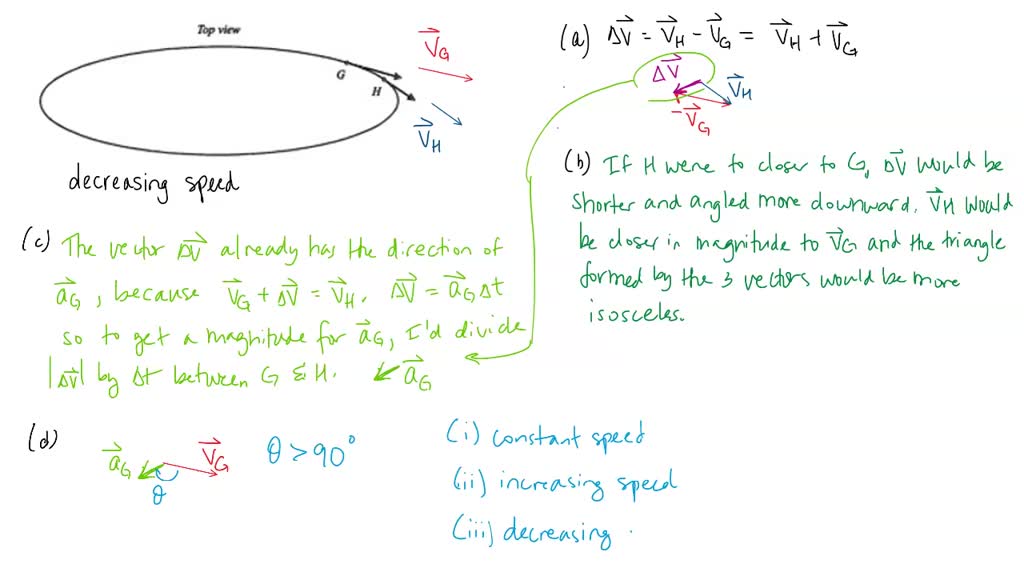 Top view
G
H
V_G
V_H
decreasing speed
(a) ΔV = V_H - V_G = V_H + V_G
ΔV
V_H
-V_G
(b) If H were to closer to G, ΔV would be
shorter and angled more downward. V_H would
be closer in magnitude to V_G and the triangle
formed by the 3 vectors would be more
isosceles.
(c) The vector ΔV already has the direction of
a_G, because V_G + ΔV = V_H. ΔV = a_G Δt
so to get a magnitude for a_G, I'd divide
|ΔV| by Δt between G & H. a_G
(d)
a_G
V_G
θ
θ > 90°
(i) constant speed
(ii) increasing speed
(iii) decreasing